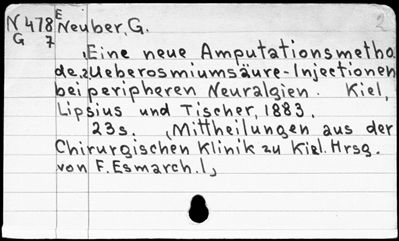 N 478 E Neuber, G.
G 7
Eine neue Amputationsmetho
de, 2 Ueberosmiumsäure-Injectionen
bei peripheren Neuralgien. Kiel,
Lipsius und Tischer, 1883.
23s. (Mittheilungen aus der
Chirurgischen Klinik zu Kiel. Hrsg.
von F. Esmarch. I,
2